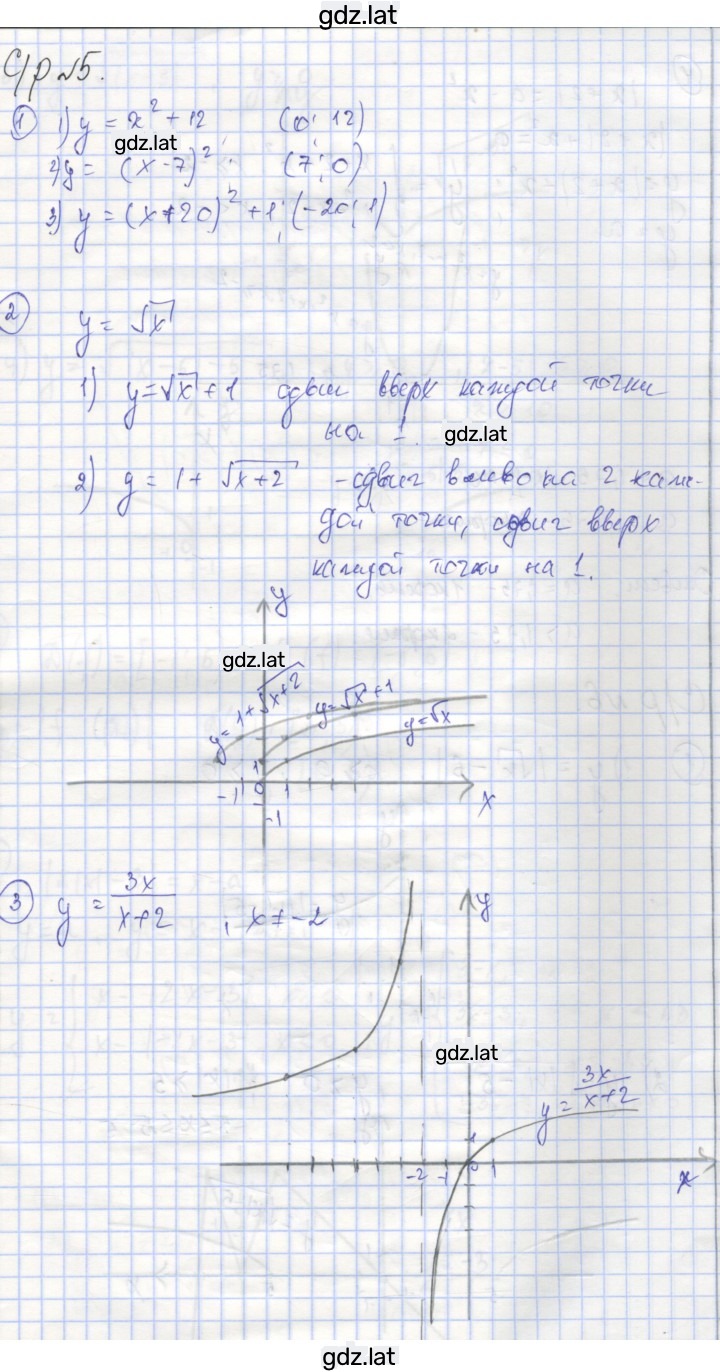 gdz.lat
С/р №5.
① 1) y = x² + 12 (0; 12)
gdz.lat
2) y = (x - 7)²; (7; 0)
3) y = (x+20)² + 1; (-20; 1)
② y = √x
1) y = √x + 1 сдвиг вверх каждой точки
на 1.
gdz.lat
2) y = 1 + √x+2 - сдвиг влево на 2 каж-
дой точки, сдвиг вверх
каждой точки на 1.
y
gdz.lat
y = 1 + √x+2
y = √x + 1
y = √x
1
-1 0 1
x
-1
③ y = 3x/x+2, x ≠ -2
y
gdz.lat
y = 3x/x+2
1
-2 -1 0 1
x
gdz.lat
gdz.lat